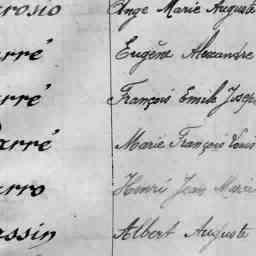 arosio Ange Marie Auguste
arré Eugène Alexandre
arré François Emile Josep
Carré Marie François Louis
arro Henri Jean Marie
assin Albert Auguste